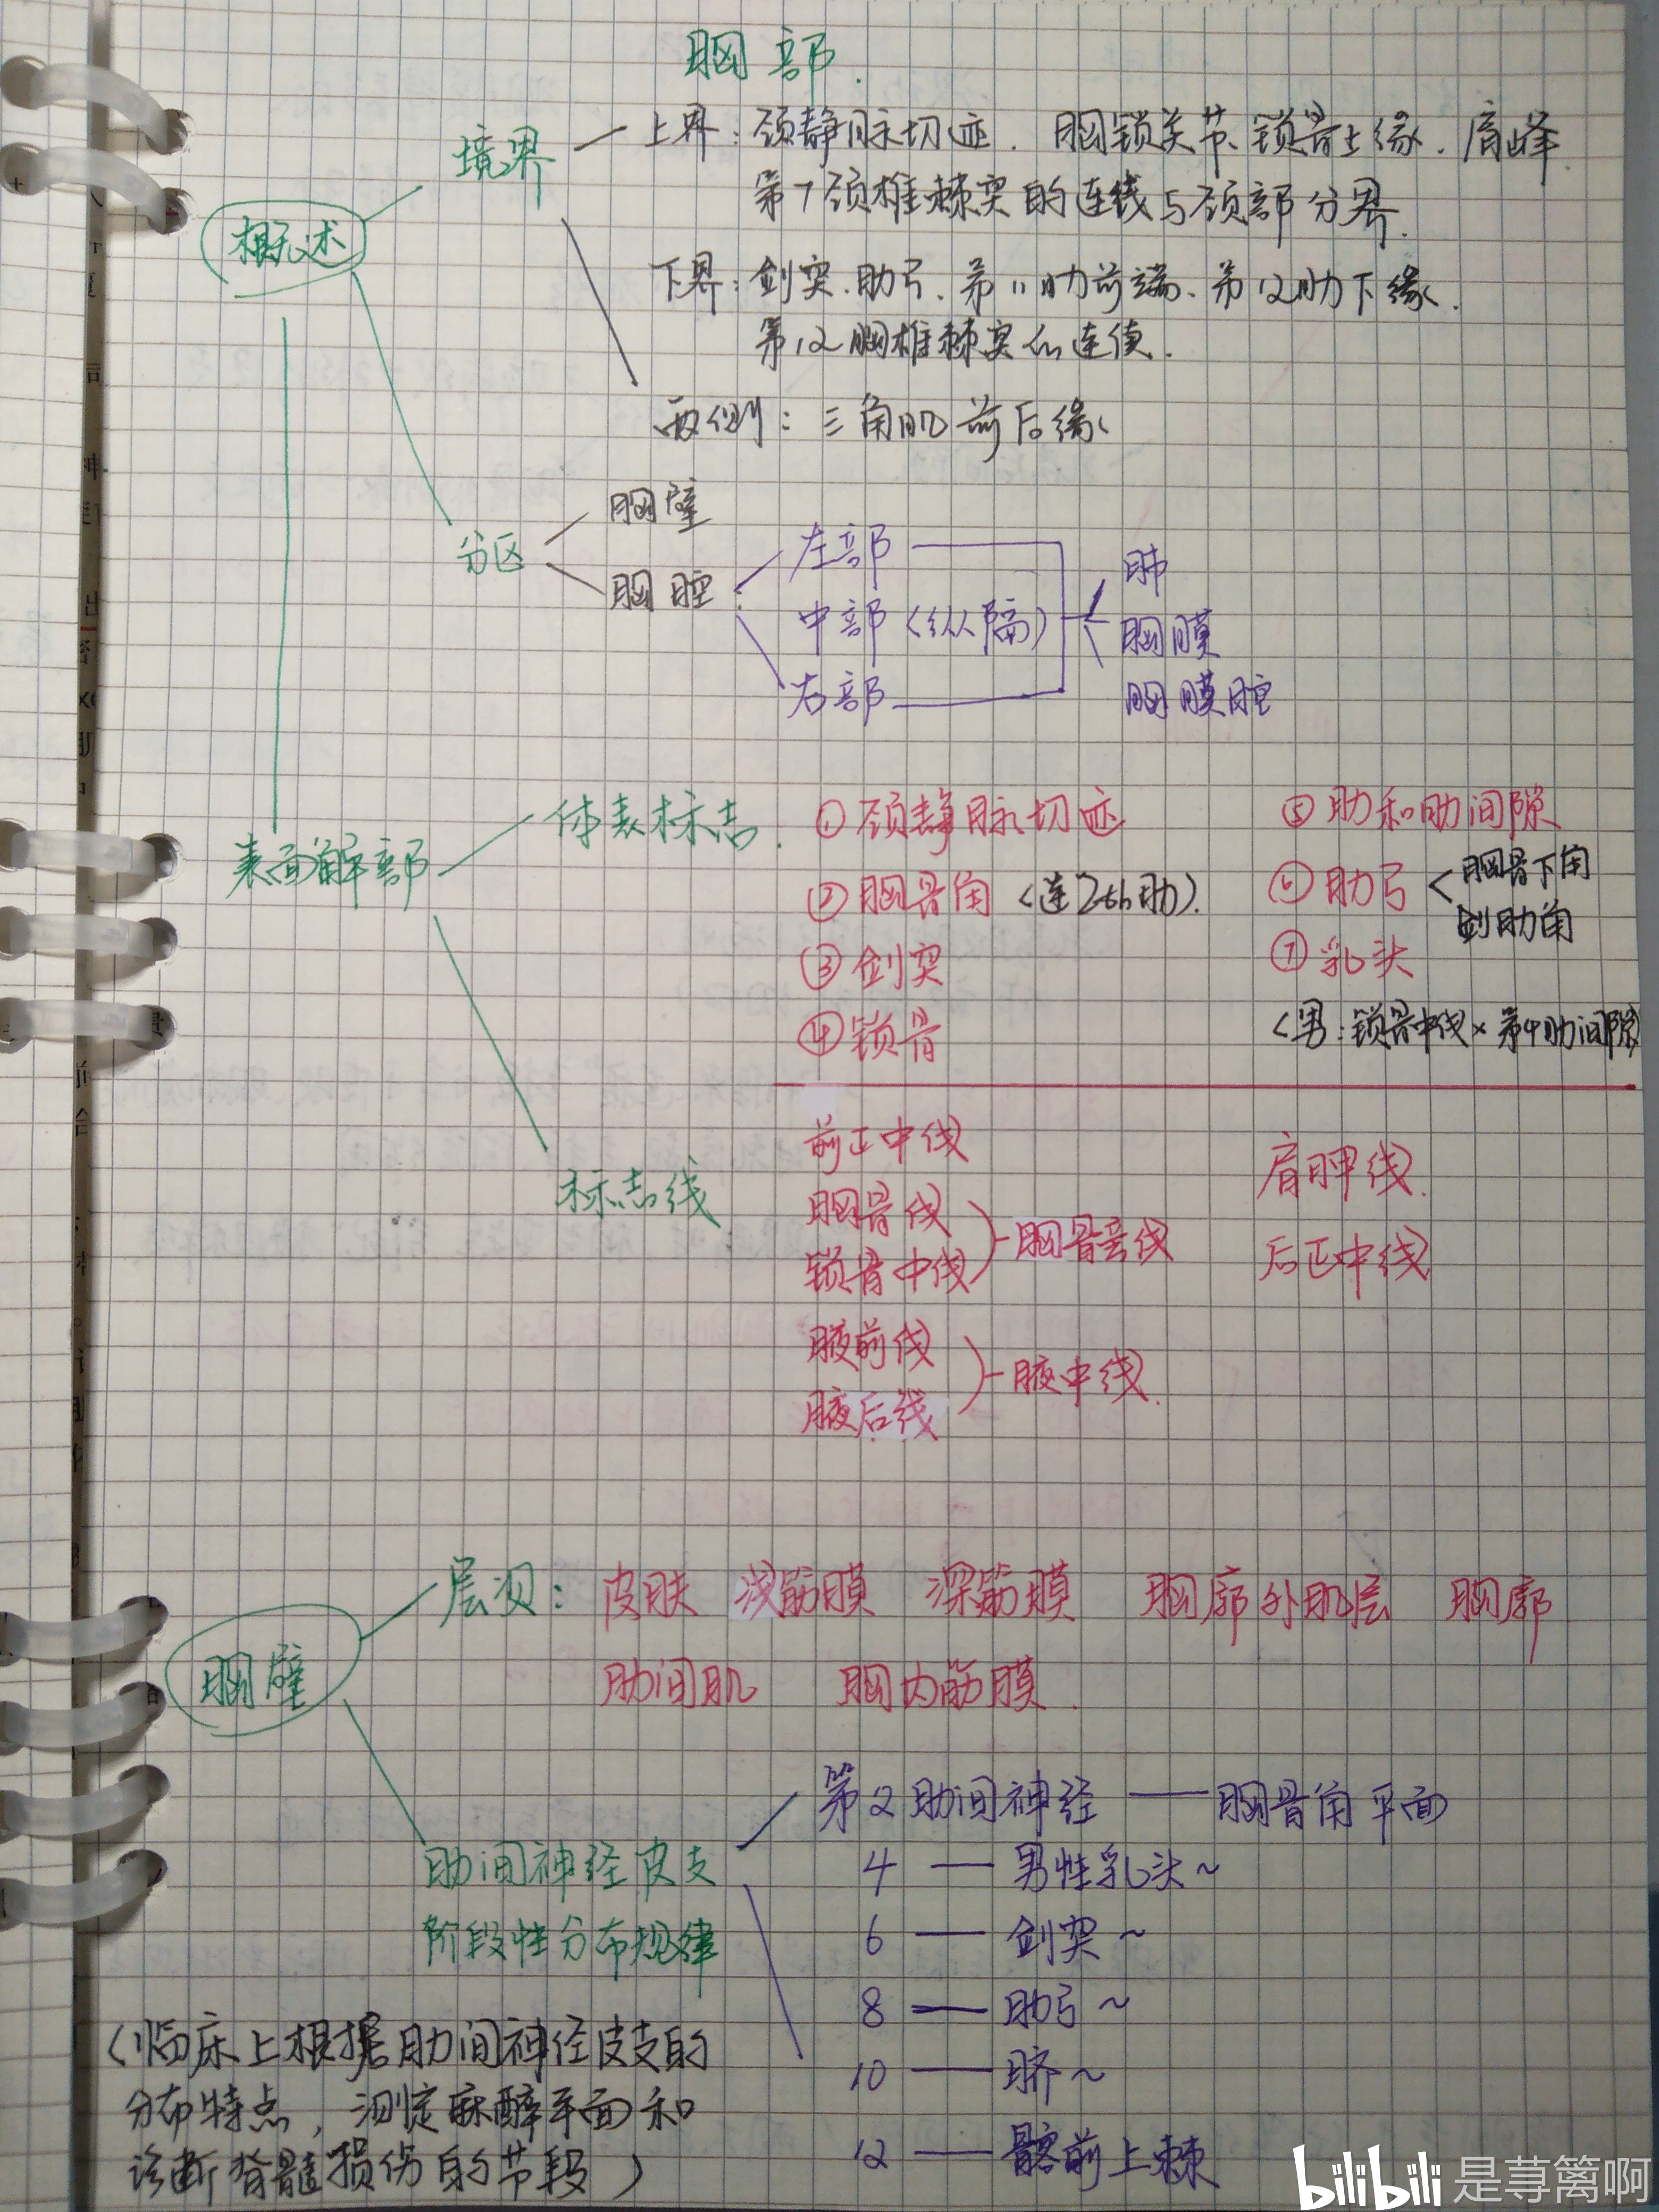 胸部.
概述
境界
上界：颈静脉切迹. 胸锁关节、锁骨上缘. 肩峰.
第7颈椎棘突的连线与颈部分界.
下界：剑突.肋弓. 第11肋前端、第12肋下缘.
第12胸椎棘突的连线.
两侧：三角肌前后缘
分区
胸壁
胸腔
左部
中部（纵隔）
右部
肺
胸膜
胸膜腔
表面解部
体表标志.
①颈静脉切迹
②胸骨角（连2th肋）.
③剑突
④锁骨
⑤肋和肋间隙
⑥肋弓
胸骨下角
剑肋角
⑦乳头
（男：锁骨中线×第4肋间隙）
标志线
前正中线
胸骨线
锁骨中线
胸骨旁线
腋前线
腋后线
腋中线.
肩胛线.
后正中线
胸壁
层次：皮肤 浅筋膜 深筋膜 胸廓外肌层 胸廓
肋间肌 胸内筋膜.
肋间神经皮支
阶段性分布规律
第2肋间神经 — 胸骨角平面
4 — 男性乳头~
6 — 剑突~
8 — 肋弓~
10 — 脐~
12 — 髂前上棘
（临床上根据肋间神经皮支的
分布特点，测定麻醉平面和
诊断脊髓损伤的节段）
bilibili 是荨篱啊